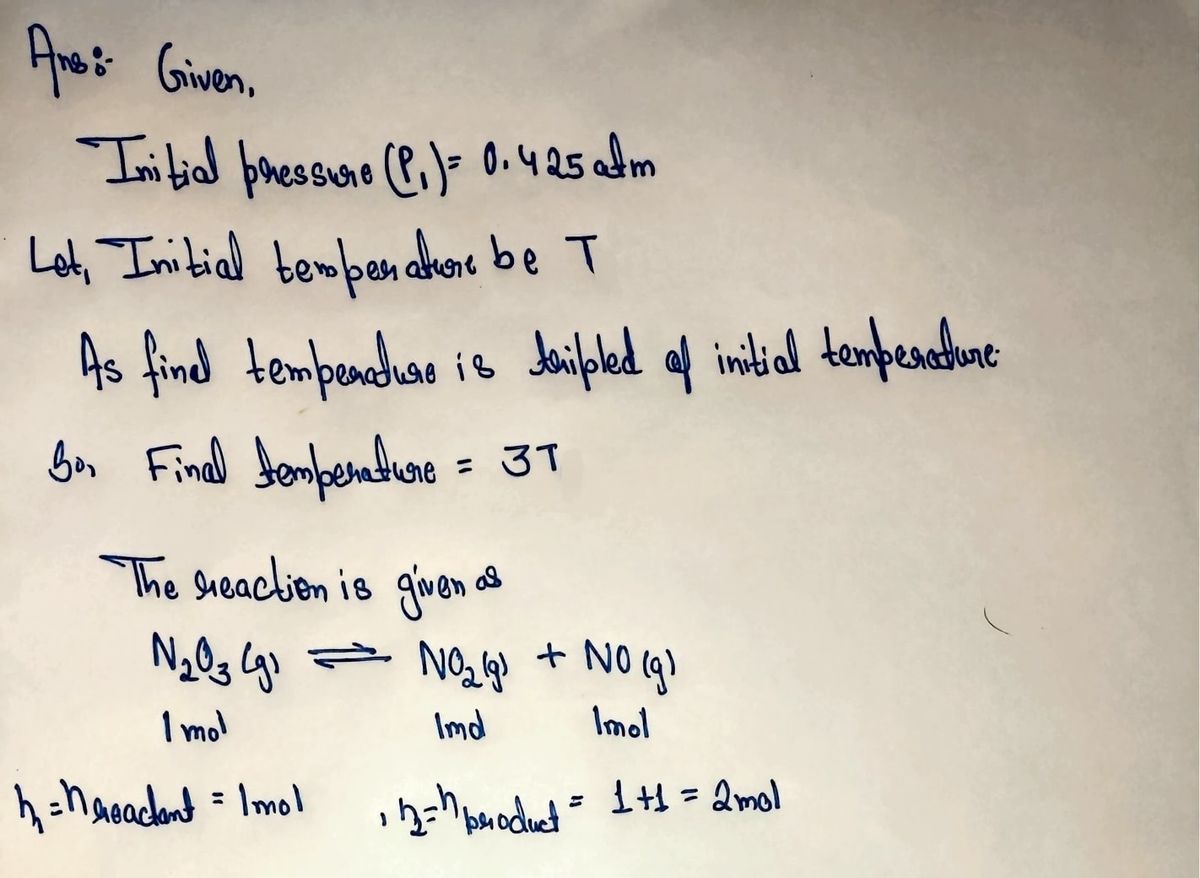 Ans:- Given,
Initial pressure (P₁) = 0.425 atm
Let, Initial temperature be T
As final temperature is tripled of initial temperature.
So, Final temperature = 3T
The reaction is given as
N₂O₃ (g) ⇌ NO₂ (g) + NO (g)
1 mol 1mol 1mol
n₁ = n reactant = 1mol , n₂ = n product = 1+1 = 2mol